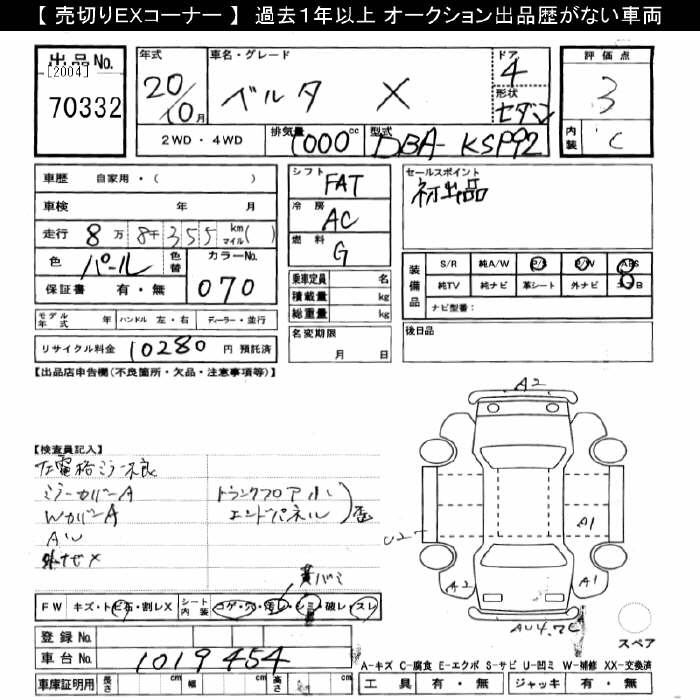 【 売切りEXコーナー 】 過去1年以上 オークション出品歴がない車両
出品No. [2004] 70332
年式 20/10月
車名・グレード ベルタ X
ドア 4
形状 セダン
評価点 3
内装 C
2WD・4WD
排気量 1000cc
型式 DBA-KSP92
車歴 自家用・( )
車検 年 月
走行 8万8千355 km マイル( )
色 パール 色替 カラーNo. 070
保証書 有・無
モデル年式 年 ハンドル 左・右 ディーラー・並行
リサイクル料金 10280円 預託済
シフト FAT
冷房 AC
燃料 G
乗車定員 名
積載量 kg
総重量 kg
名変期限 月 日
セールスポイント
初出品
装備品 S/R 純A/W P/S P/W ABS
純TV 純ナビ 革シート 外ナビ
ナビ型番:
後日品
【出品店申告欄(不良箇所・欠品・注意事項等)】
【検査員記入】
左電格ミラー不良
ミラーカバーA
WカバーA
AW
外ナビX
トランクフロア
エンドパネル
歪
A2
A1
A2
A1
黄バミ
FW キズ・トビ石・割レX シート内装 コゲ・穴・汚レ・シミ・破レ・スレ
登録No.
車台No. 1019454
車庫証明用 長さ cm 幅 cm 高さ cm
スペア
A-キズ C-腐食 E-エクボ S-サビ U-凹ミ W-補修 XX-交換済
工具 有・無 ジャッキ 有・無